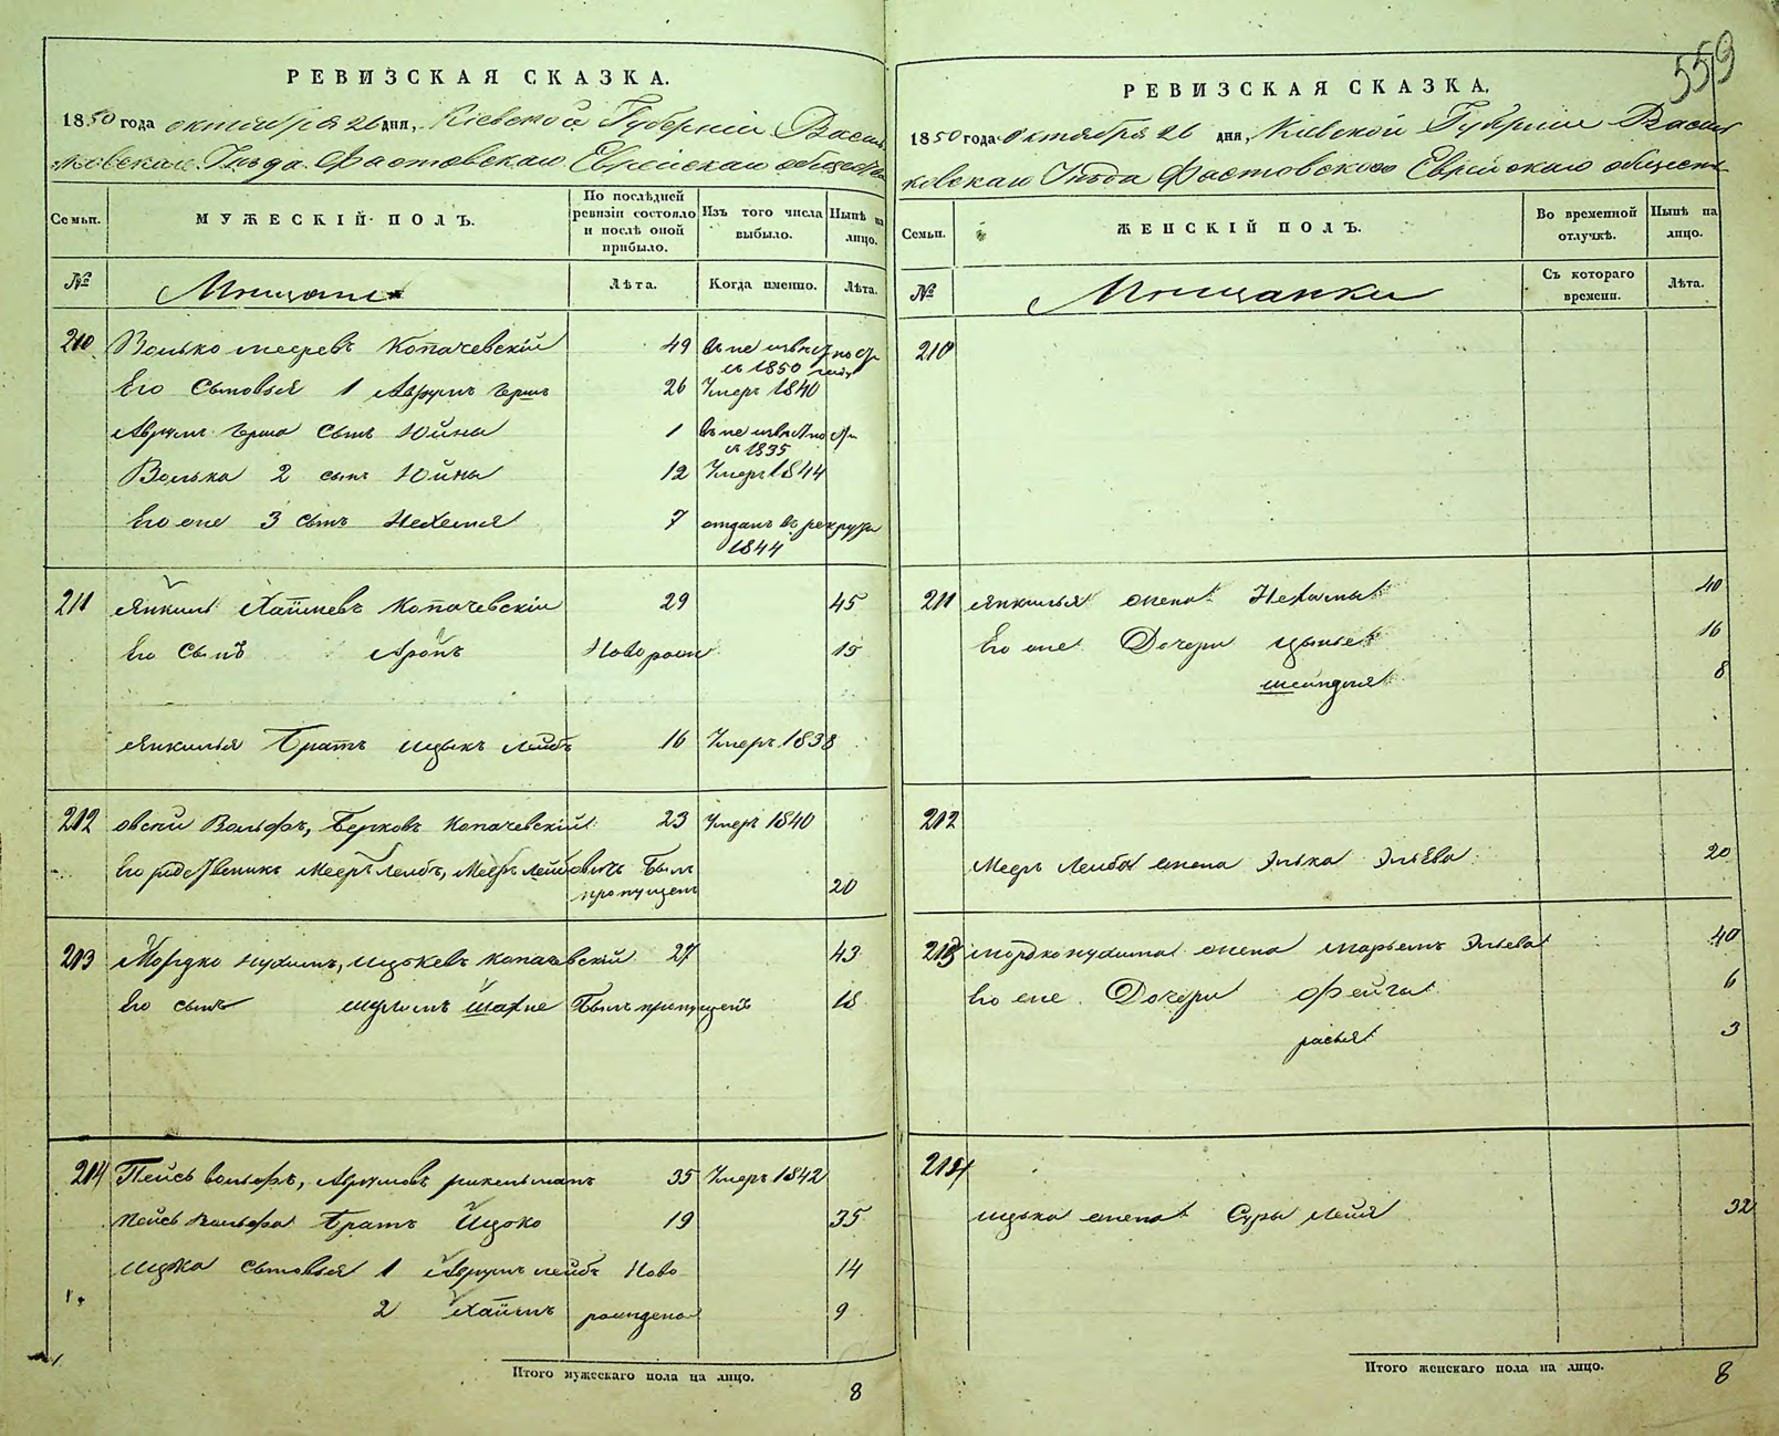 559
РЕВИЗСКАЯ СКАЗКА.
1850 года октября 26 дня, Кіевской Губерніи Василь
ковскаго Уѣзда Фастовскаго Еврейскаго общества
Семьи.
МУЖЕСКІЙ ПОЛЪ.
По послѣдней
ревизіи состояло
и послѣ оной
прибыло.
Изъ того числа
выбыло.
Нынѣ на
лицо.
№
Мѣщане
Лѣта.
Когда именно.
Лѣта.
210 Волько Мееревъ Копачевскій 49 въ неизвѣстно
съ 1850 года
Его сыновья 1 Аврумъ Гершъ 26 Умеръ 1840
Аврумъ Герша сынъ Юйна 1 въ неизвѣстно
съ 1835
Волька 2 сынъ Юйна 12 Умеръ 1844
Его же 3 сынъ Нехемія 7 отданъ въ рекруты
1844
211 Янкиль Хаимовъ Копачевскій 29 45
Его сынъ Аронъ Новорож 15
Янкиля братъ Ицыкъ Лейбъ 16 Умеръ 1838
212 Овсій Вольфъ, Берковъ Копачевскій 23 Умеръ 1840
Его родственикъ Мееръ Лейбъ, Мееръ Лейбовичъ былъ
пропущенъ 20
213 Мордко Нухимъ, Ицкевъ Копачевскій 27 43
Его сынъ Шулимъ Шахне былъ пропущенъ 18
214 Пейсь Вольфъ, Аврумовъ 35 Умеръ 1842
Пейсь Вольфа братъ Ицко 19 35
Ицка сыновья 1 Аврумъ Лейбъ Ново 14
2 Хаимъ рождена 9
Итого мужескаго пола на лицо.
8
РЕВИЗСКАЯ СКАЗКА.
1850 года октября 26 дня, Кіевской Губерніи Василь
ковскаго Уѣзда Фастовскаго Еврейскаго обществ
Семьи.
ЖЕНСКІЙ ПОЛЪ.
Во временной
отлучкѣ.
Нынѣ на
лицо.
№
Мѣщанки
Съ котораго
времени.
Лѣта.
210
211 Янкиля жена Нехама 40
Его же Дочери Цыпье 16
Шейндля 8
212
Меэръ Лейба жена Элька Эльева 20
213 Мордко Нухима жена Марьемъ Эльева 40
Его же Дочери Фейга 6
Расья 3
214
Ицька жена Сура Лея 32
Итого женскаго пола на лицо.
8